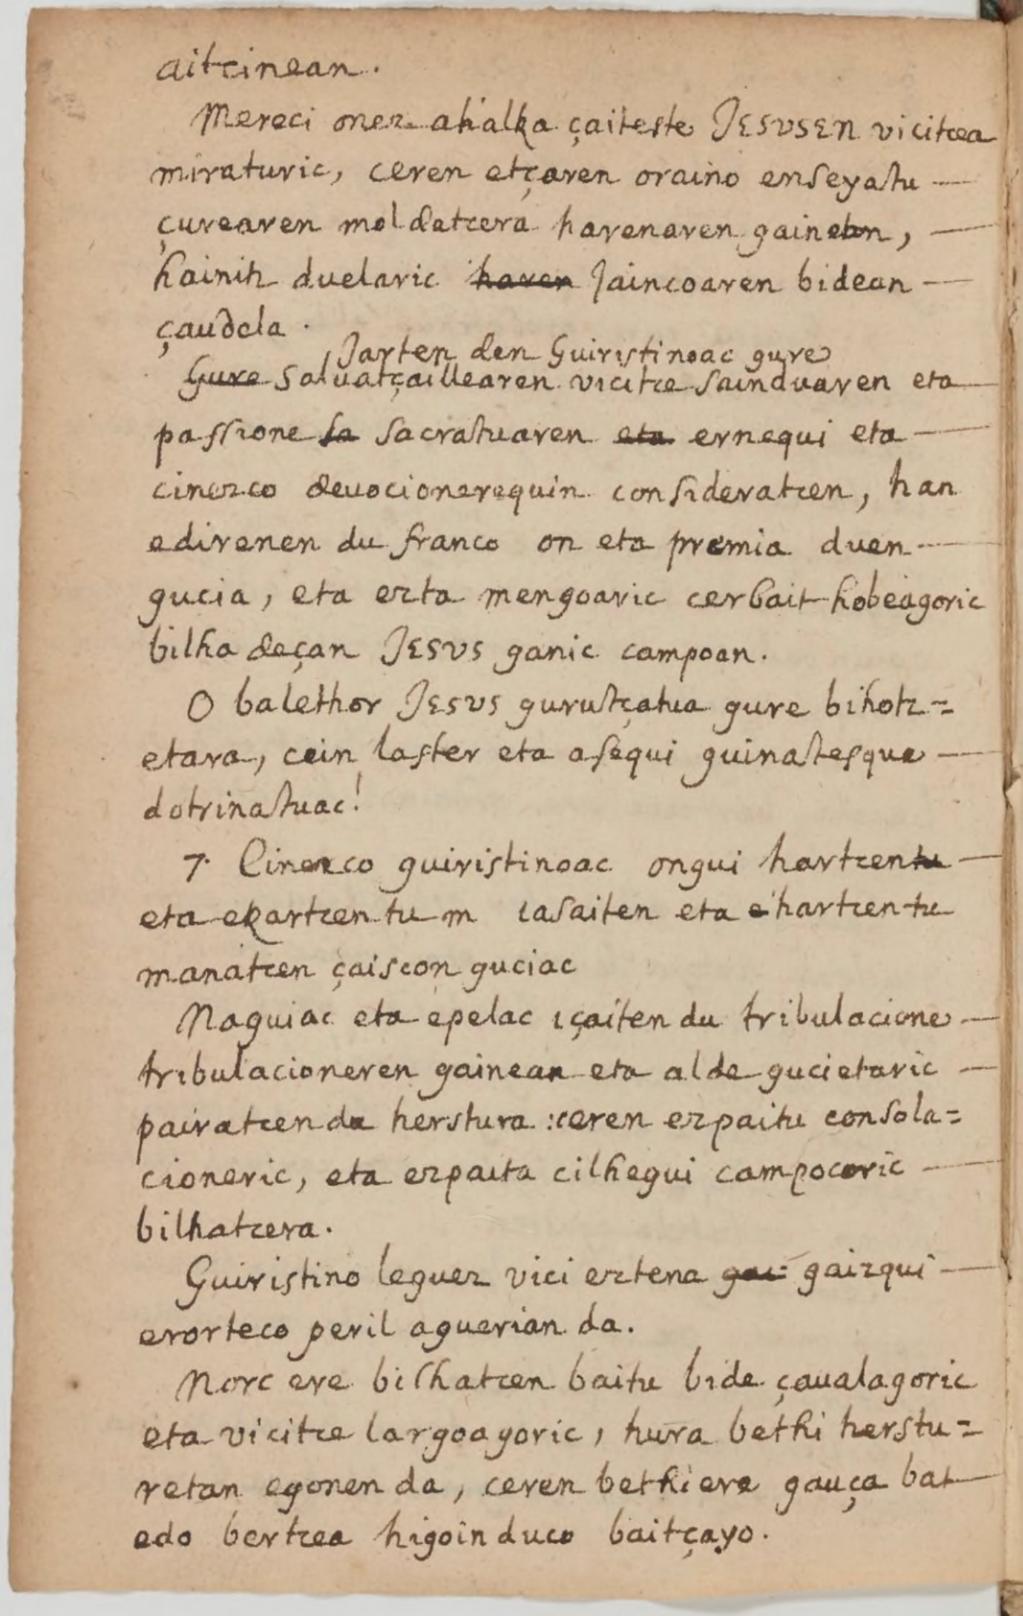 aitcinean.
Mereci onez ahalka çaiteste JESUSEN vicitcea
miraturic, ceren etçaren oraino enseyatu
çurearen moldatcera harenaren gainean,
hainitz duelaric haren Jaincoaren bidean
çaudela.
Jarten den Guiristinoac gure
Gure Saluatçaillearen vicitce sainduaren eta
passione sa sacratuaren eta ernequi eta
cinezco deuocionerequin consideratcen, han
edirenen du franco on eta premia duen
gucia, eta ezta mengoaric cerbait hobeagoric
bilha deçan JESUS ganic campoan.
O balethor JESUS gurutçatua gure bihotz=
etara, cein laster eta asequi guinatesque
dotrinatuac!
7. Cinezco guiristinoac ongui hartcentu
eta ekartcentu m iasaiten eta ehartcentu
manatcen çaiscon guciac
Naguiac eta epelac içaiten du tribulacione
tribulacioneren gainean eta alde gucietaric
pairatcen du herstura: ceren ezpaitu consola=
cioneric, eta ezpaita cilhegui campocoric
bilhatcera.
Guiristino leguez vici eztena gai= gaizqui
erorteco peril aguerian da.
Norc ere bilhatcen baitu bide çaualagoric
eta vicitce largoagoric, hura bethi herstu=
retan egonen da, ceren bethiere gauça bat
edo bertcea higoinduco baitçayo.